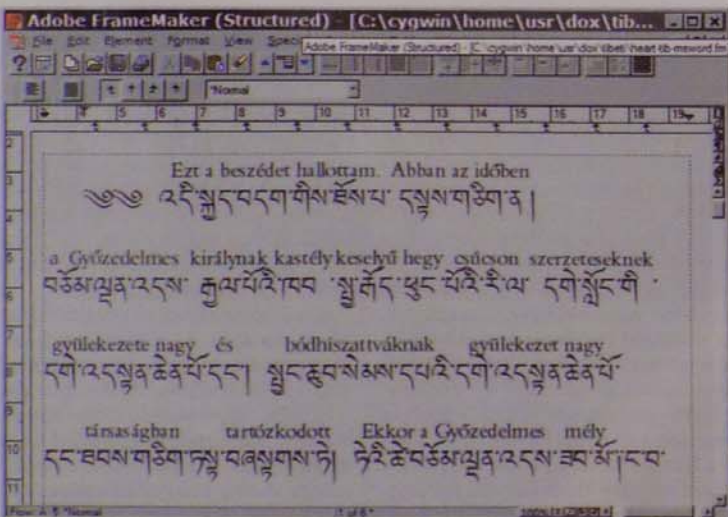 Adobe FrameMaker (Structured) - [C:\cygwin\home\usr\dox\tib...
File Edit Element Format View Special
Adobe FrameMaker (Structured) - [C:\cygwin\home\usr\dox\tibeti\heart-tib-meword.fm
Normal
5 6 7 8 9 10 11 12 13 14 15 16 17 18 19
Ezt a beszédet hallottam. Abban az időben
༄༅ འདི་སྐྱད་བདག་གིས་ཐོས་པ་ དུས་གཅིག་ན །
a Győzedelmes királynak kastély keselyű hegy csúcson szerzeteseknek
བཅོམ་ལྡན་འདས་ རྒྱལ་པོའི་ཁབ ་བྱ་རྒོད་ཕུང་པོའི་རི་ལ་ དགེ་སློང་གི ་
gyülekezete nagy és bódhiszattváknak gyülekezet nagy
དགེ་འདུན་ཆེན་པོ་དང་། བྱང་ཆུབ་སེམས་དཔའི་དགེ་འདུན་ཆེན་པོ་
társaságban tartózkodott Ekkor a Győzedelmes mély
དང་ཐབས་གཅིག་ཏུ་བཞུགས་ཏེ། དེའི་ཚེ་བཅོམ་ལྡན་འདས་ཟབ་མོ
Flow: A ¶: *Normal
1 of 6 *
100%